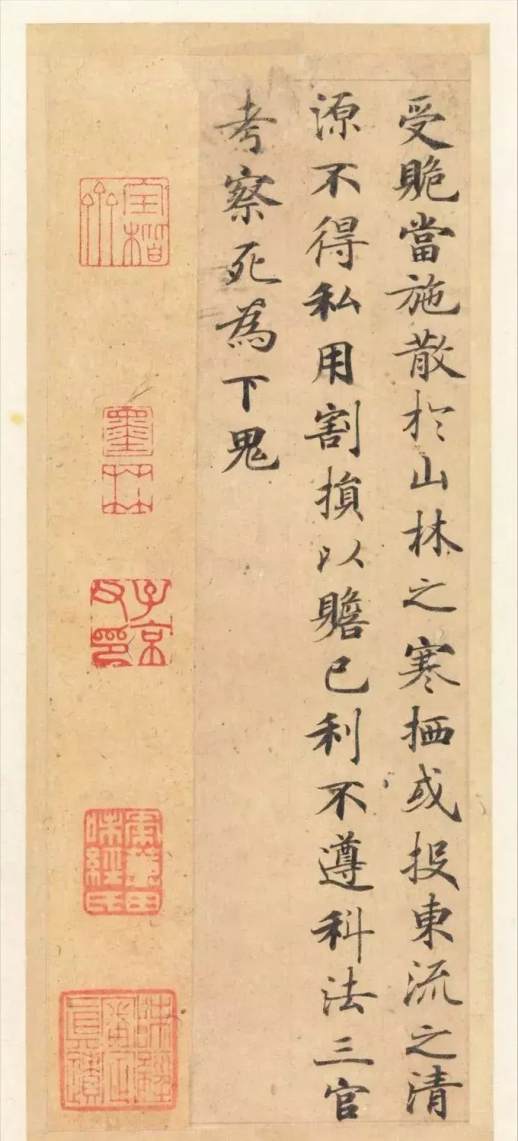 受當施散於山林之寒栖或投東流之清
源不得私用割損以贍己利不遵科法三官
考察死為下鬼
檇李
墨林
子京父印